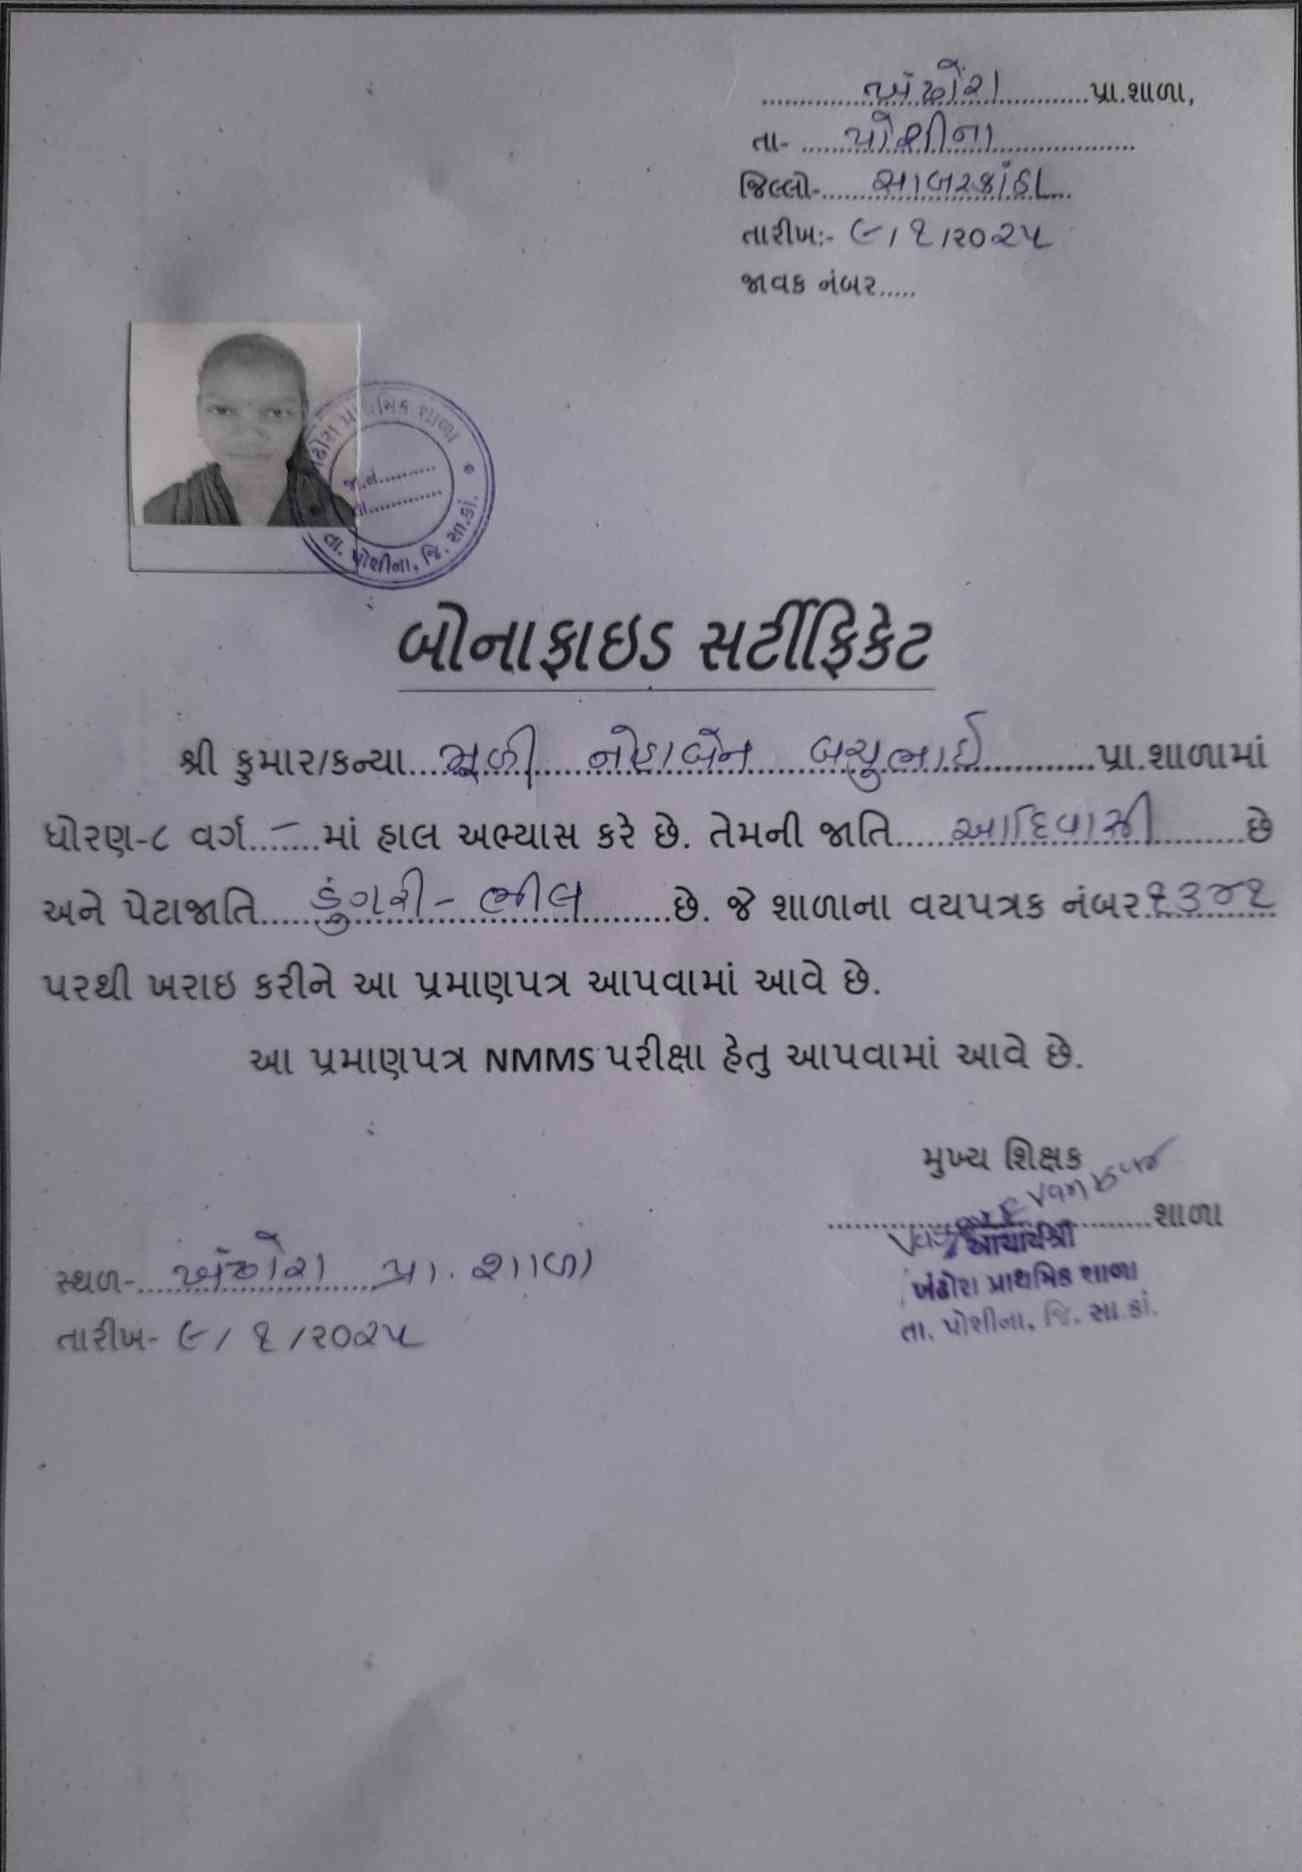 ખંઢોરા પ્રા.શાળા,
તા- પોશીના
જિલ્લો- સાબરકાંઠા
તારીખ:- ૯/૧/૨૦૨૫
જાવક નંબર.....
પ્રાથમિક શાળા
જા.નં..........
તા. પોશીના, જિ. સા.કાં.
બોનાફાઇડ સર્ટીફિકેટ
શ્રી કુમાર/કન્યા... મૂળી નોહાબેન બચુભાઈ પ્રા.શાળામાં
ધોરણ-૮ વર્ગ..-...માં હાલ અભ્યાસ કરે છે. તેમની જાતિ... આદિવાસી છે
અને પેટાજાતિ... ડુંગરી - ભીલ છે. જે શાળાના વયપત્રક નંબર ૧૩૪૧
પરથી ખરાઇ કરીને આ પ્રમાણપત્ર આપવામાં આવે છે.
આ પ્રમાણપત્ર NMMS પરીક્ષા હેતુ આપવામાં આવે છે.
મુખ્ય શિક્ષક
શાળા
આચાર્યશ્રી
ખંઢોરા પ્રાથમિક શાળા
તા. પોશીના, જિ. સા.કાં.
સ્થળ- ખંઢોરા પ્રા. શાળા
તારીખ- ૯/૧/૨૦૨૫